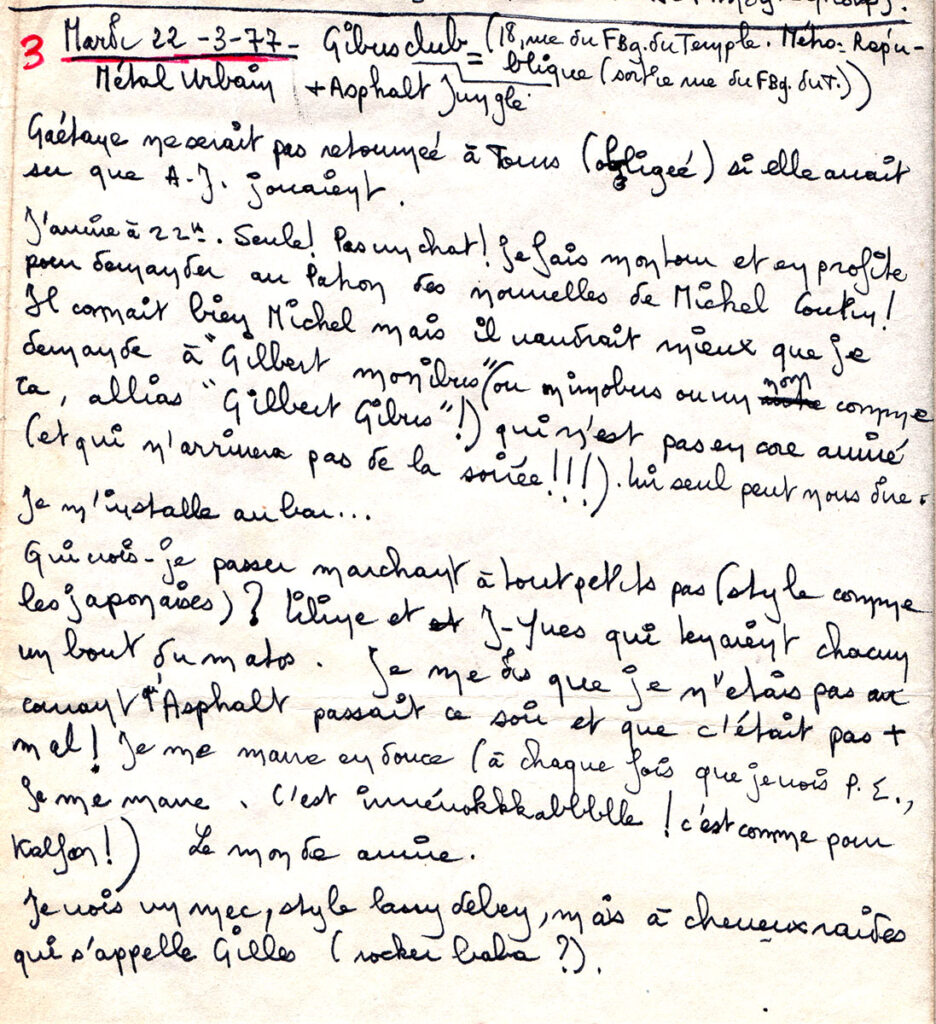 3 Mardi 22-3-77- Gibus club = (18, rue du FBg. du Temple. Métro = Répu-
blique (sortie rue du FBg. du T.))
Métal Urbain + Asphalt Jungle
Gaétane ne serait pas retournée à Tours (obligée) si elle avait
su que A.J. jouaient.
J'arrive à 22h. Seule! Pas un chat! Je fais mon tour et en profite
pour demander au Patron des nouvelles de Michel
Il connait bien Michel mais il vaudrait mieux que je
demande à "Gilbert monibus" (ou minobus ou un nom comme
ça, allias "Gilbert Gibus"!) qui n'est pas encore arrivé
(et qui n'arrivera pas de la soirée!!!). Lui seul peut nous dire.
Je m'installe au bar...
Qui vois-je passer marchant à tout petits pas (style comme
les japonaises)? Liline et J-Yves qui tenaient chacun
un bout du matos. Je me dis que je n'étais pas au
courant qu'Asphalt passait ce soir et que c'était pas +
mal! Je me marre en douce (à chaque fois que je vois P.E.,
Je me marre. C'est innénokkkabbbblle! c'est comme pour
Kalfon!) Le monde arrive.
Je vois un mec, style lany debey, mais à cheveux raides
qui s'appelle Gilles (rocker baba?).